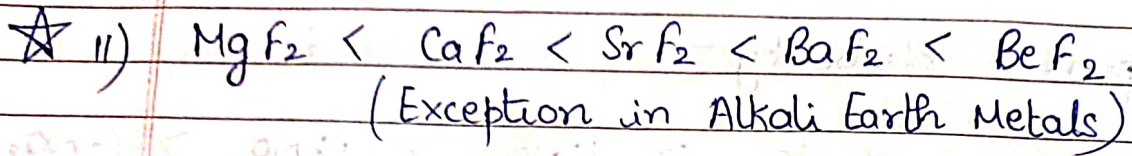 ☆ 11) MgF₂ < CaF₂ < SrF₂ < BaF₂ < BeF₂.
(Exception in Alkali Earth Metals)